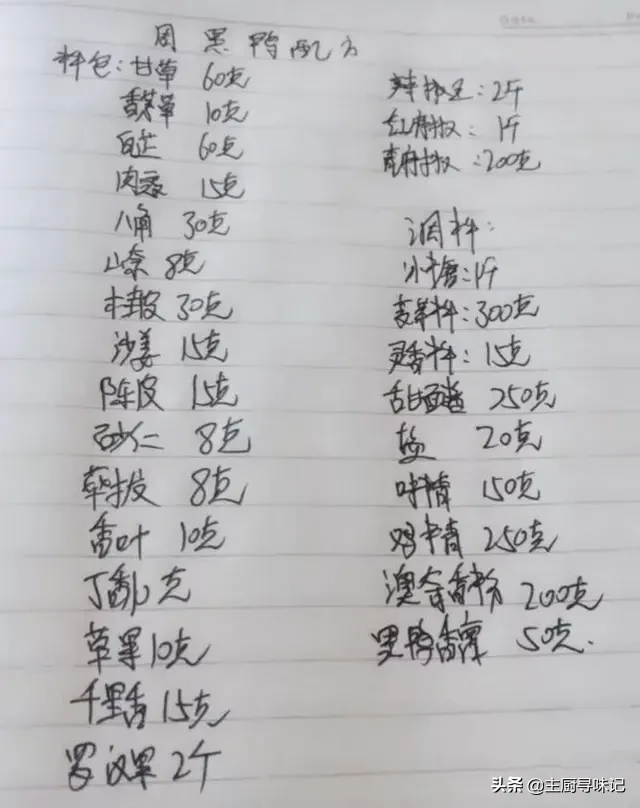 周黑鸭配方
料包：甘草 60克
香茅草 10克
白芷 60克
肉蔻 15克
八角 30克
山奈 8克
桂皮 30克
沙姜 15克
陈皮 15克
砂仁 8克
8克
香叶 10克
丁香 克
草果 10克
千里香 15克
罗汉果 2个
辣椒：2斤
红麻椒：1斤
青麻椒：200克
调料：
冰糖：1斤
300克
15克
250克
盐 20克
味精 150克
鸡精 250克
香粉 200克
黑鸭香膏 50克.
头条 @主厨寻味记